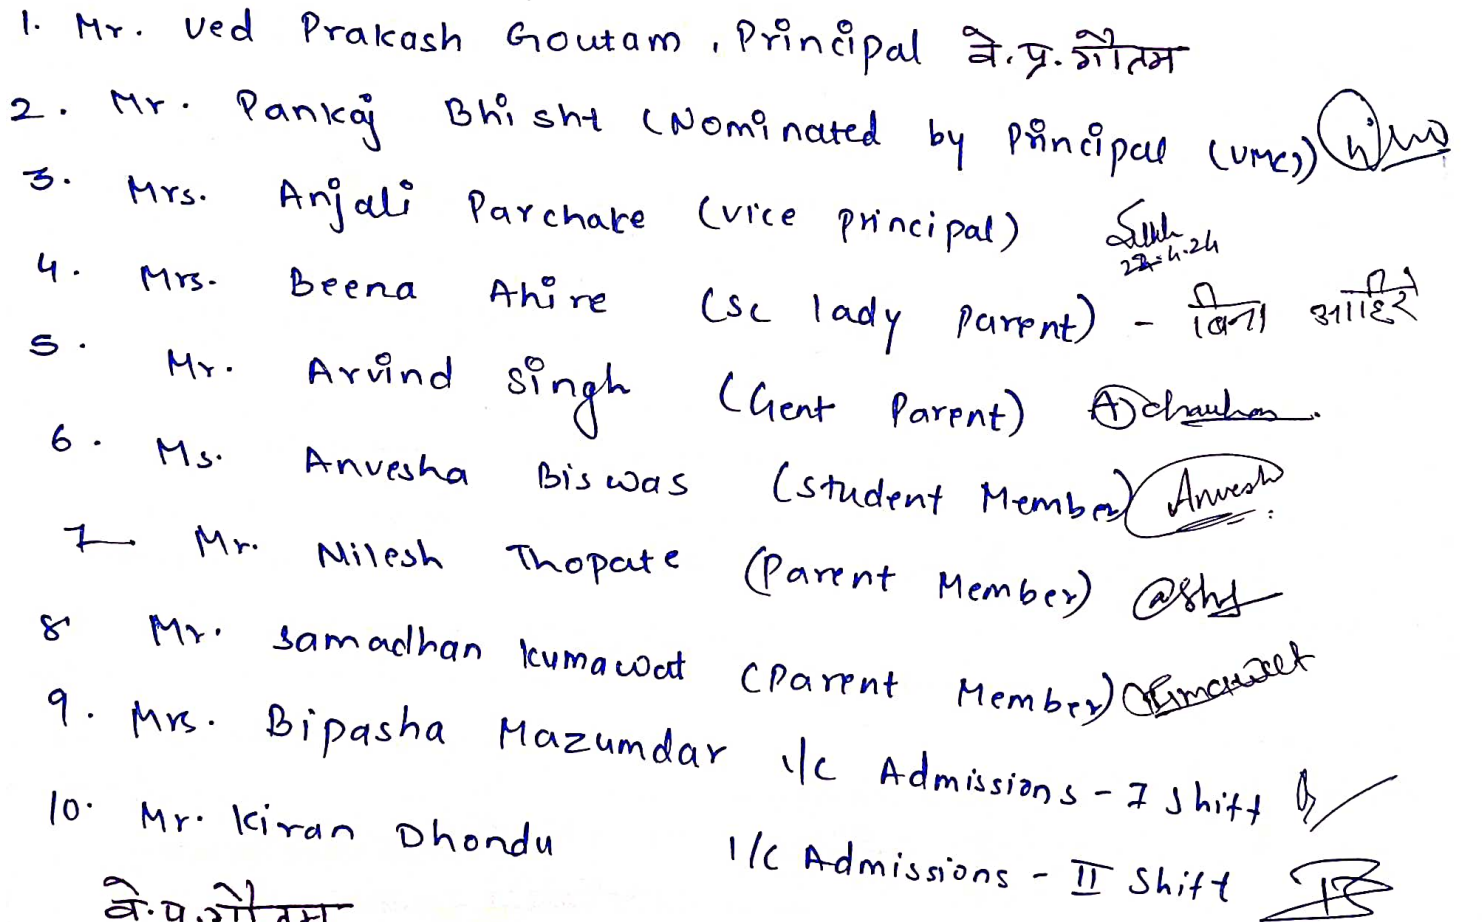 1. Mr. Ved Prakash Goutam, Principal वे.प्र.गौतम
2. Mr. Pankaj Bhisht (Nominated by Principal (VMC))
3. Mrs. Anjali Parchake (Vice Principal) 22.4.24
4. Mrs. Beena Ahire (SC lady Parent) - बिना आहिरे
5. Mr. Arvind Singh (Gent Parent) AChauhan.
6. Ms. Anvesha Biswas (Student Member) Anvesha
7 Mr. Nilesh Thopate (Parent Member)
8 Mr. Samadhan Kumawat (Parent Member) Kumawat
9. Mrs. Bipasha Mazumdar I/C Admissions - I Shift
10. Mr. Kiran Dhondu I/C Admissions - II Shift
वे.प्र.गौतम